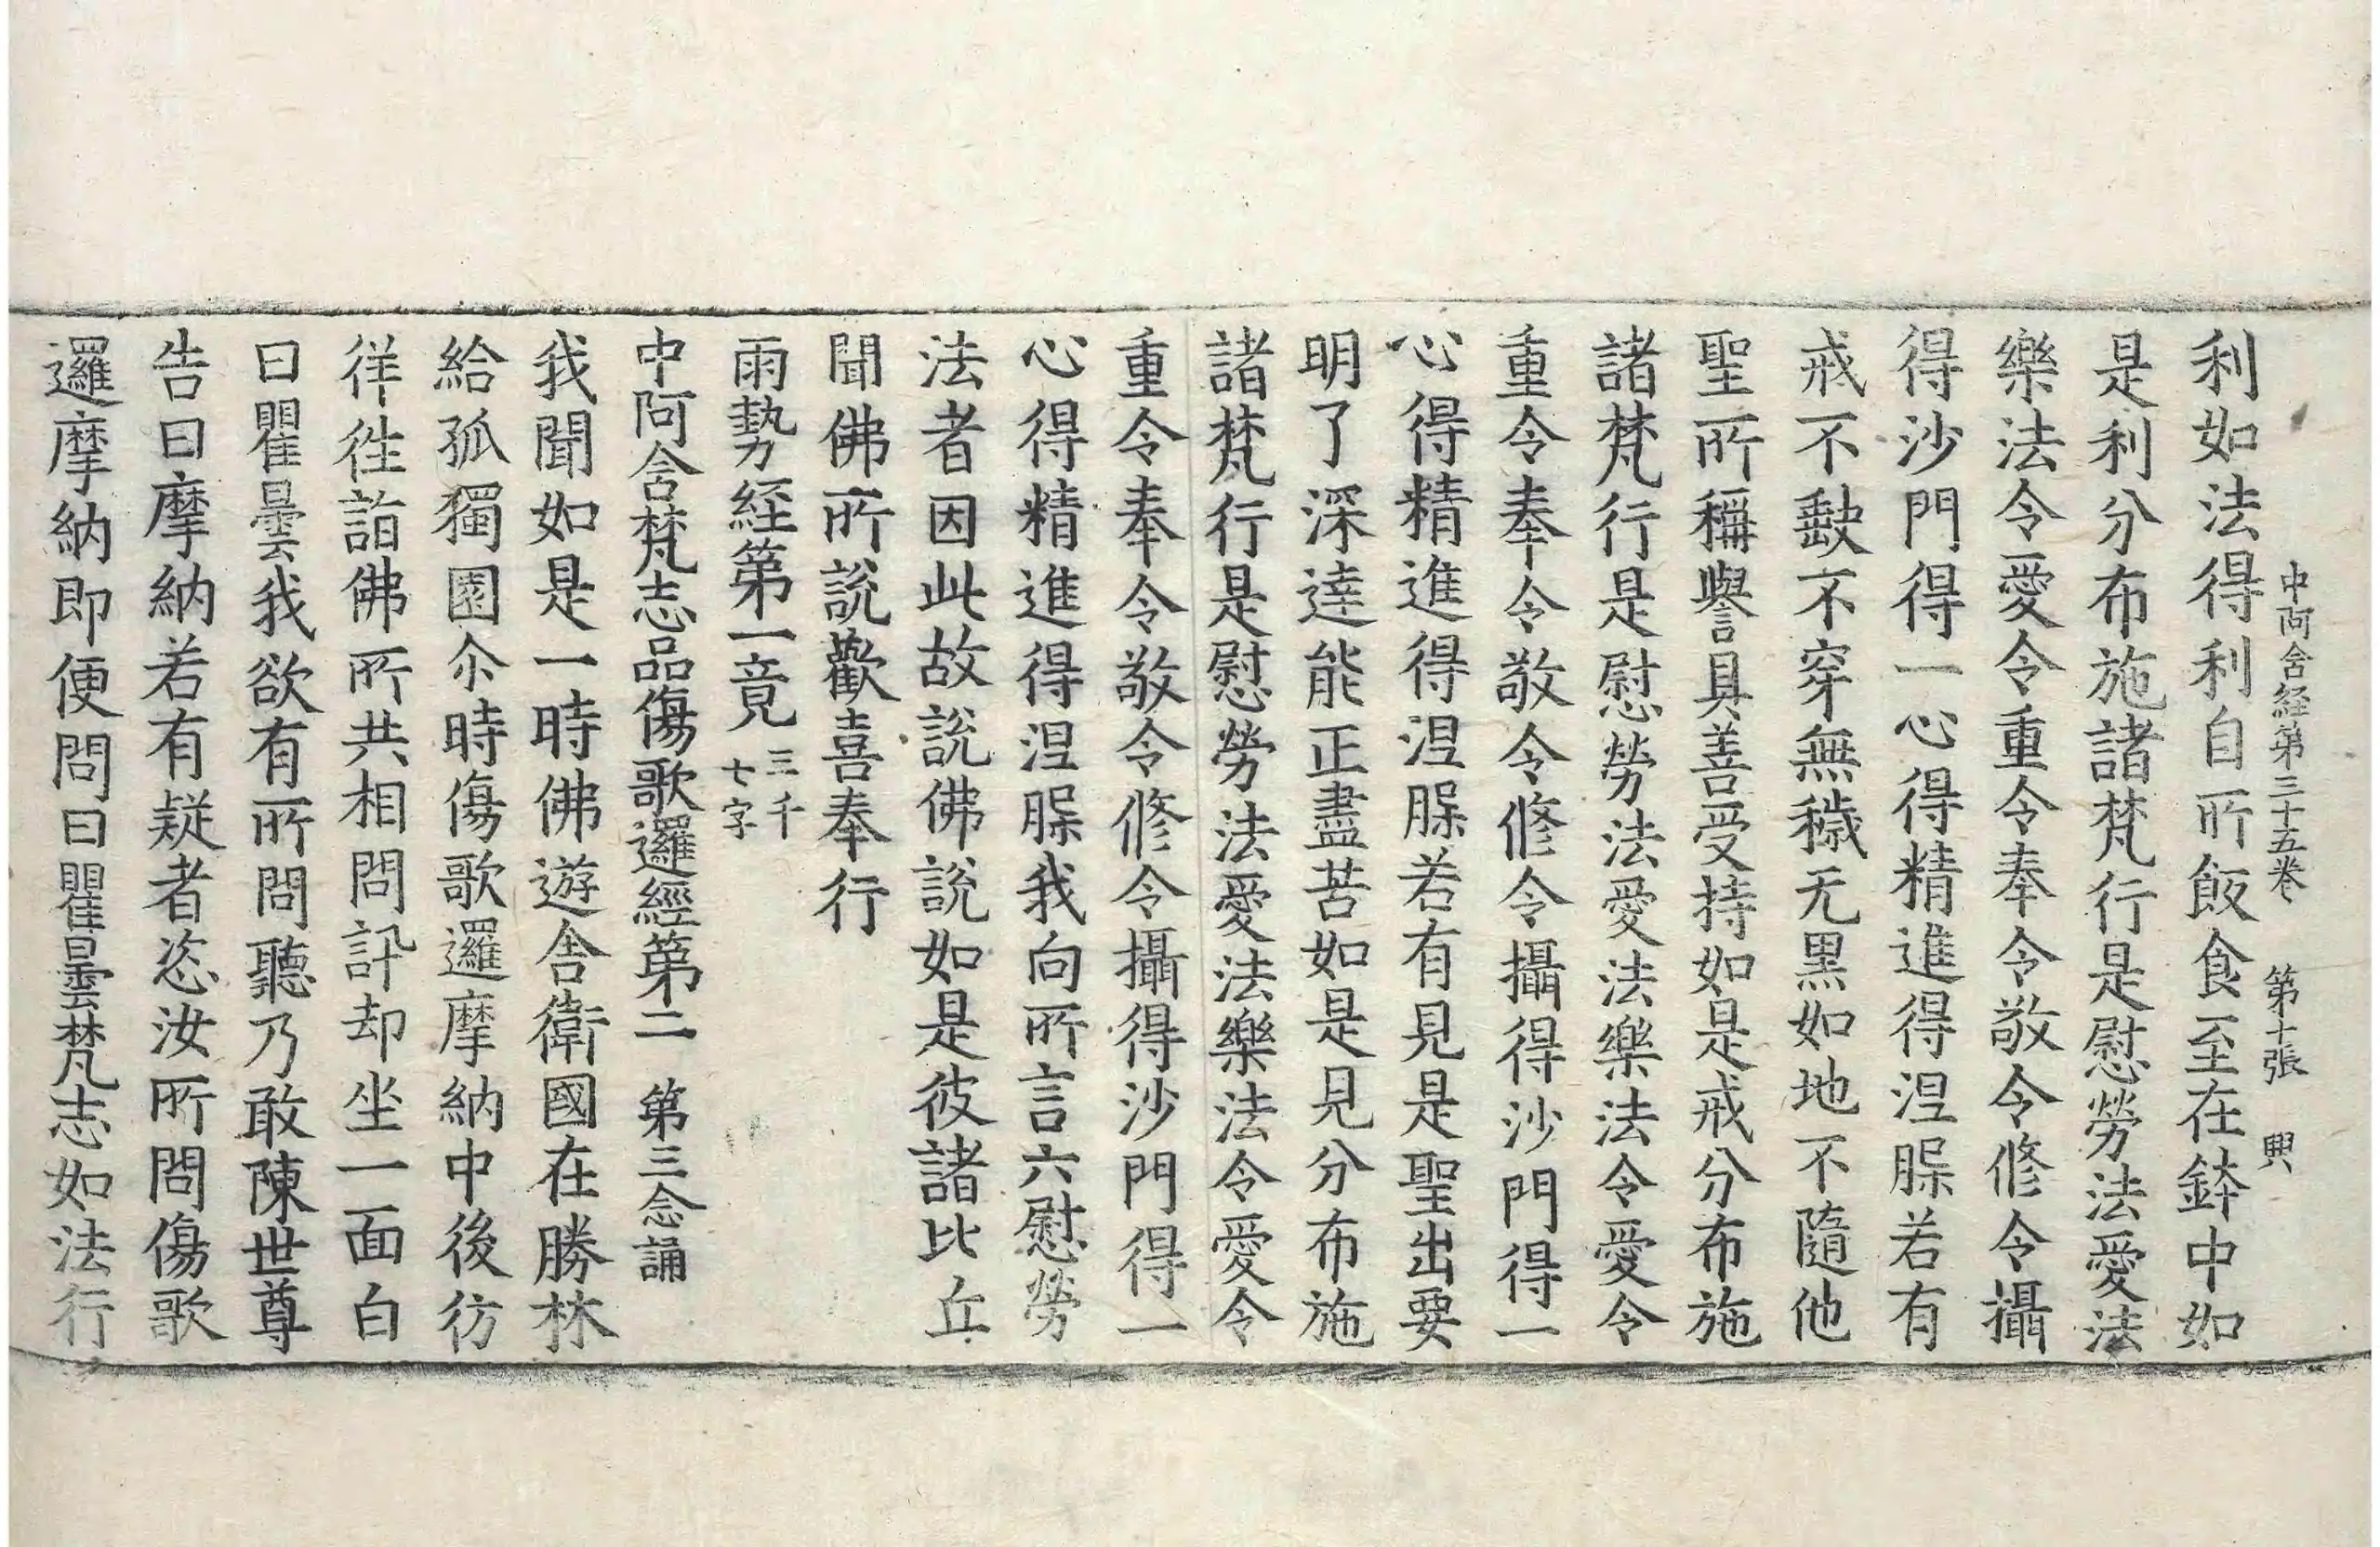 中阿含経第三十五卷 第十張 興
利如法得利自所飯食至在鉢中如
是利分布施諸梵行是慰勞法愛法
樂法令愛令重令奉令敬令修令攝
得沙門得一心得精進得涅槃若有
戒不㱠不穿無穢无黑如地不隨他
聖所稱譽具善受持如是戒分布施
諸梵行是慰勞法愛法樂法令愛令
重令奉令敬令修令攝得沙門得一
心得精進得涅槃若有見是聖出要
明了深達能正盡苦如是見分布施
諸梵行是慰勞法愛法樂法令愛令
重令奉令敬令修令攝得沙門得一
心得精進得涅槃我向所言六慰勞
法者因此故說佛說如是彼諸比丘
聞佛所說歡喜奉行
雨勢経第一竟三千七字
中阿含梵志品傷歌邏經第二 第三念誦
我聞如是一時佛遊舍衛國在勝林
給孤獨園尒時傷歌邏摩納中後彷
徉徃詣佛所共相問訊却坐一面白
曰瞿曇我欲有所問聽乃敢陳世尊
告曰摩納若有疑者恣汝所問傷歌
邏摩納即便問曰瞿曇梵志如法行